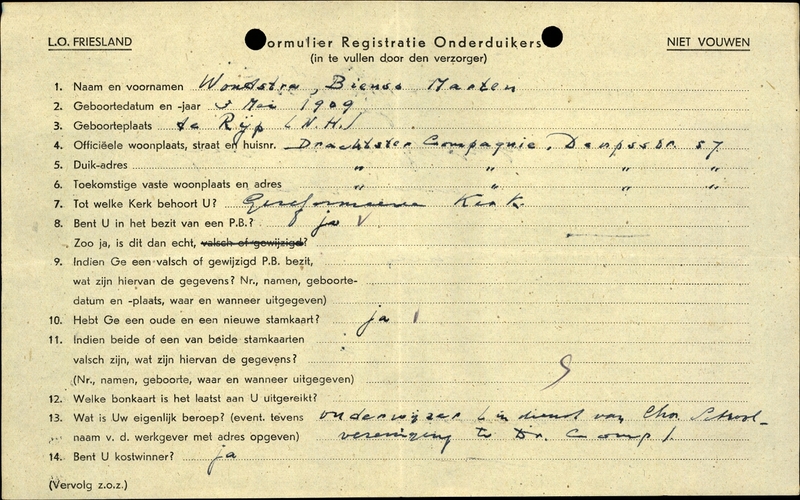 L.O. FRIESLAND
Formulier Registratie Onderduikers
NIET VOUWEN
(in te vullen door den verzorger)
1. Naam en voornamen Wondstra, Maarten
2. Geboortedatum en -jaar 3 Mei 1909
3. Geboorteplaats de Rijp (N.H.)
4. Officiëele woonplaats, straat en huisnr. Drachtster Compagnie, 57
5. Duik-adres " " " "
6. Toekomstige vaste woonplaats en adres " " " "
7. Tot welke Kerk behoort U? Gereformeerde Kerk
8. Bent U in het bezit van een P.B.? ja V
Zoo ja, is dit dan echt, valsch of gewijzigd?
9. Indien Ge een valsch of gewijzigd P.B. bezit,
wat zijn hiervan de gegevens? Nr., namen, geboorte-
datum en -plaats, waar en wanneer uitgegeven)
10. Hebt Ge een oude en een nieuwe stamkaart? ja
11. Indien beide of een van beide stamkaarten
valsch zijn, wat zijn hiervan de gegevens?
(Nr., namen, geboorte, waar en wanneer uitgegeven)
12. Welke bonkaart is het laatst aan U uitgereikt?
13. Wat is Uw eigenlijk beroep? (event. tevens onderwijzer (in dienst van Chr. School-
naam v. d. werkgever met adres opgeven) vereeniging te Dr. Comp.)
14. Bent U kostwinner? ja
(Vervolg z.o.z.)